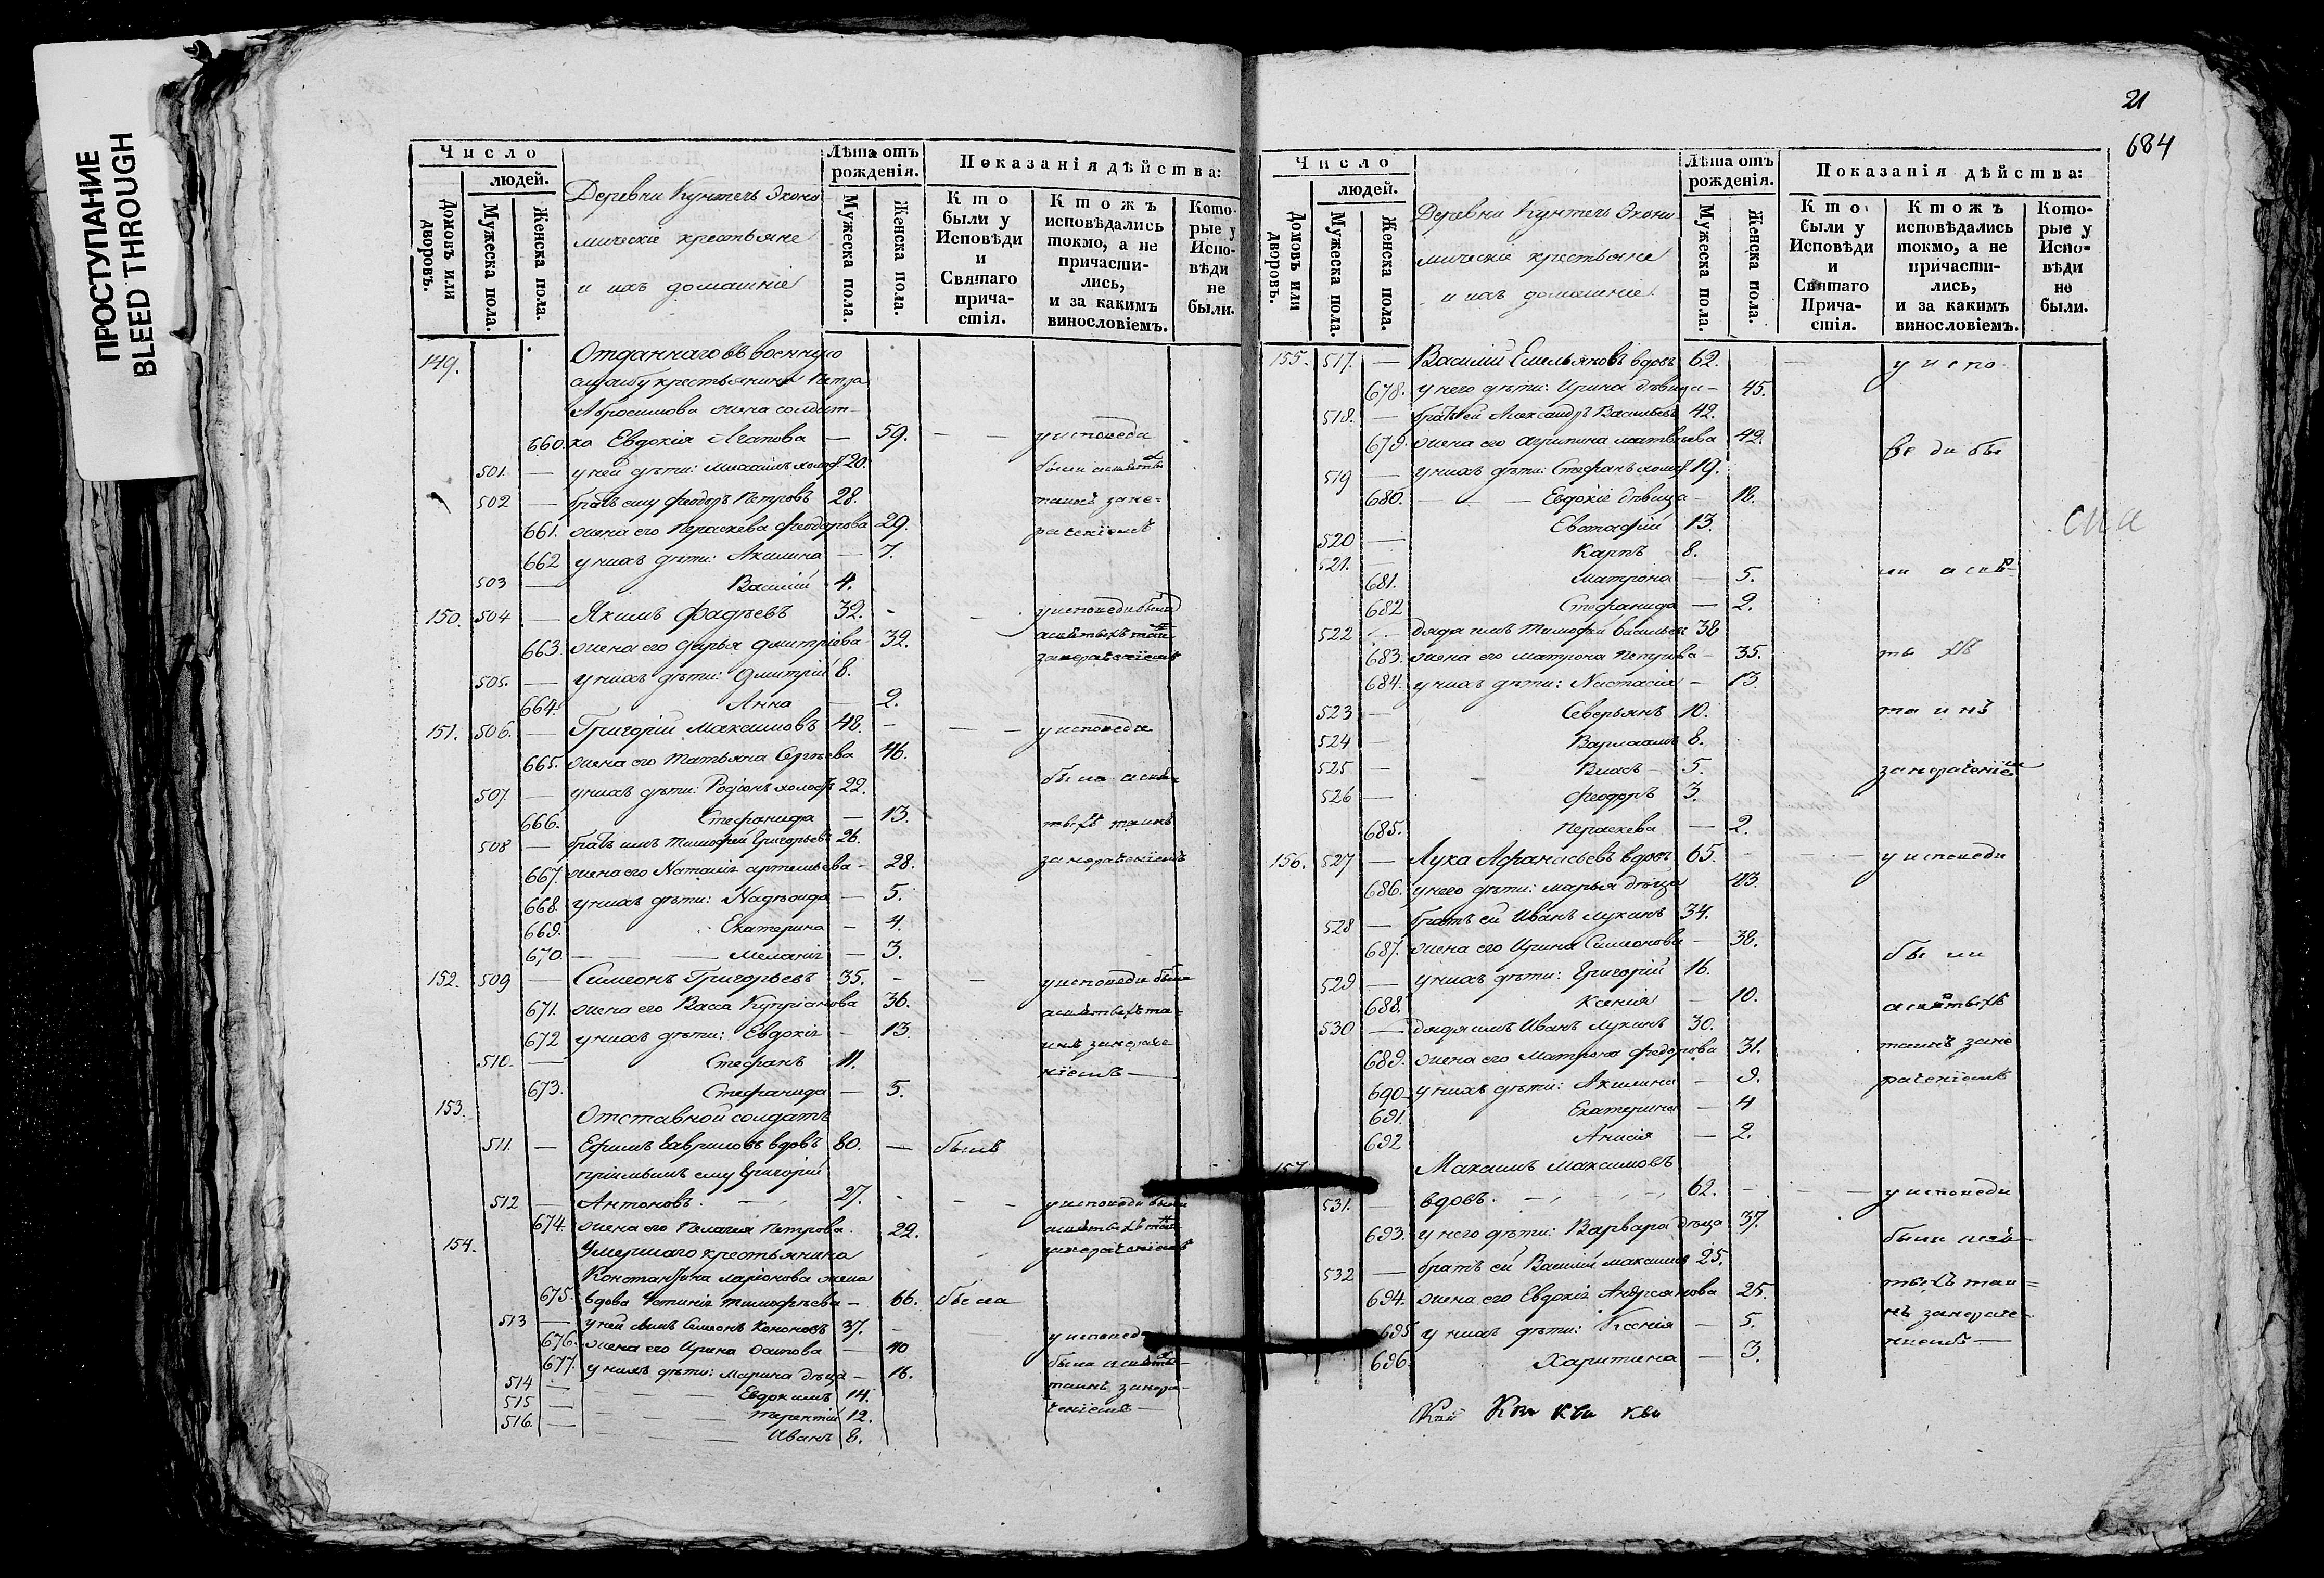 ПРОСТУПАНИЕ
BLEED THROUGH
Число
людей.
Домовъ или дворовъ.
Мужеска пола.
Женска пола.
Деревни Кунтечь Эконо
мическіе крестьяне
и ихъ домашніе
Лѣта отъ рожденія.
Мужеска пола.
Женска пола.
Показанія дѣйства:
Кто были у Исповѣди и Святаго причастія.
Ктожъ исповѣдались токмо, а не причастились, и за какимъ винословіемъ.
Которые у Исповѣди не были.
149. Отданнаго въ военную
службу крестьянина Петра
Абросимова жена солдат-
660. ка Евдокія Агапова — 59. — — у исповеди
501. — у ней дѣти: Михаилъ холос 20.
502 — братъ ему Феодоръ Петровъ 28.
661. жена его Параскева Феодорова 29. раченіемъ
662 у нихъ дѣти: Акилина — 7.
503 — Василій 4.
150. 504 — Якимъ Фадѣевъ 32. - - у исповеди были
663. жена его Дарья Дмитріева 32. а святыхъ таи
505. — у нихъ дѣти: Дмитрій 8. занераченіемъ
664. Анна — 2.
151. 506. — Григорій Максимовъ 48. - — у исповеди
665. жена его Татьяна Сергѣева 46.
507. — у нихъ дѣти: Родіонъ холос 22. были а свя
666. Стефанида — 13. тыхъ таинъ
508 — братъ имъ Тимофей Григорьевъ 26.
667. жена его Наталія Артемьева - 28. занераченіемъ
668. у нихъ дѣти: Надѣжда — 5.
669. Екатерина — 4.
670. — — Меланія — 3.
152. 509 — Симеонъ Григорьевъ 35. - - у исповеди были
671. жена его Васса Купріанова 36. а святыхъ та-
672 у нихъ дѣти: Евдокія - 13. инъ занераче
510. — Стефанъ 11. ніемъ —
673. Стефанида — 5.
153. Отставной солдатъ
511. — Ефимъ Гавриловъ вдовъ 80. — былъ
пріемышъ ему Григорій
512 — Антоновъ. — 27. - - у исповеди были
674. жена его Пелагея Петрова. 22. а святыхъ таи
154. Умершаго крестьянина занераченіемъ
Константина Ларіонова жена
675. вдова Устинія Тимофѣева — 66. была
513 — у ней сынъ Симеонъ Кононовъ 37. - у исповеди
676. жена его Ирина Осипова — 40 были а святы-
677. у нихъ дѣти: Марина дѣвца — 16. таинъ занера-
514 — Евдокимъ 14. ченіемъ —
515 — Терентій 12.
516. — Иванъ 8.
21
684
Число
людей.
Домовъ или дворовъ.
Мужеска пола.
Женска пола.
Деревни Кунтечь Эконо
мическіе крестьяне
и ихъ домашніе
Лѣта отъ рожденія.
Мужеска пола.
Женска пола.
Показанія дѣйства:
Кто были у Исповѣди и Святаго Причастія.
Ктожъ исповѣдались токмо, а не причастились, и за какимъ винословіемъ.
Которые у Исповѣди не были.
155. 517. — Василій Емельяновъ вдовъ 62. — у испо
678. у него дѣти: Ирина дѣвица — 45.
518. — братъ ей Александръ Васильевъ 42.
679. жена его Агрипина Матвѣева 42. ве ди бы
519 — у нихъ дѣти: Стефанъ холос 19.
680. — — Евдокіе дѣвица — 18.
520 — Евстафій 13.
521. — Карпъ 8.
681. Матрона — 5. ли а свя
682 Стефанида — 2.
522 — дядя имъ Тимофей Васильевъ 38
683. жена его Матрона Петрова — 35. ты хъ
684. у нихъ дѣти: Настасія — 13.
523 — Северьянъ 10. та инъ
524 — Варлаамъ 8.
525 — Власъ — 5. занераченіемъ
526 — Феодоръ 3.
685. Параскева — 2.
156. 527 — Лука Афанасьевъ вдовъ 65. - — у исповеди
686. у него дѣти: Марья дѣвца 43.
528 — братъ ей Иванъ Лукинъ 34.
687. жена его Ирина Симеонова — 38. бы ли
529 — у нихъ дѣти: Григорій 16.
688. Ксенія — 10. а святыхъ
530 — дядя имъ Иванъ Лукинъ 30.
689. жена его Матрона Федорова 31. таинъ зане
690 у нихъ дѣти: Акилина — 9. раченіемъ
691. Екатерина — 4
692 Анисія — 2.
157. Максимъ Максимовъ
531. — вдовъ. — 62. - — у исповеди
693. у него дѣти: Варвара дѣвца 37. были а свя-
532 — братъ ей Василій Максимов 25.
694. жена его Евдокія Андреянова 25. тыхъ таи-
695 у нихъ дѣти: Ксенія — 5. нъ занераче-
696. Харитина — 3. ніемъ —